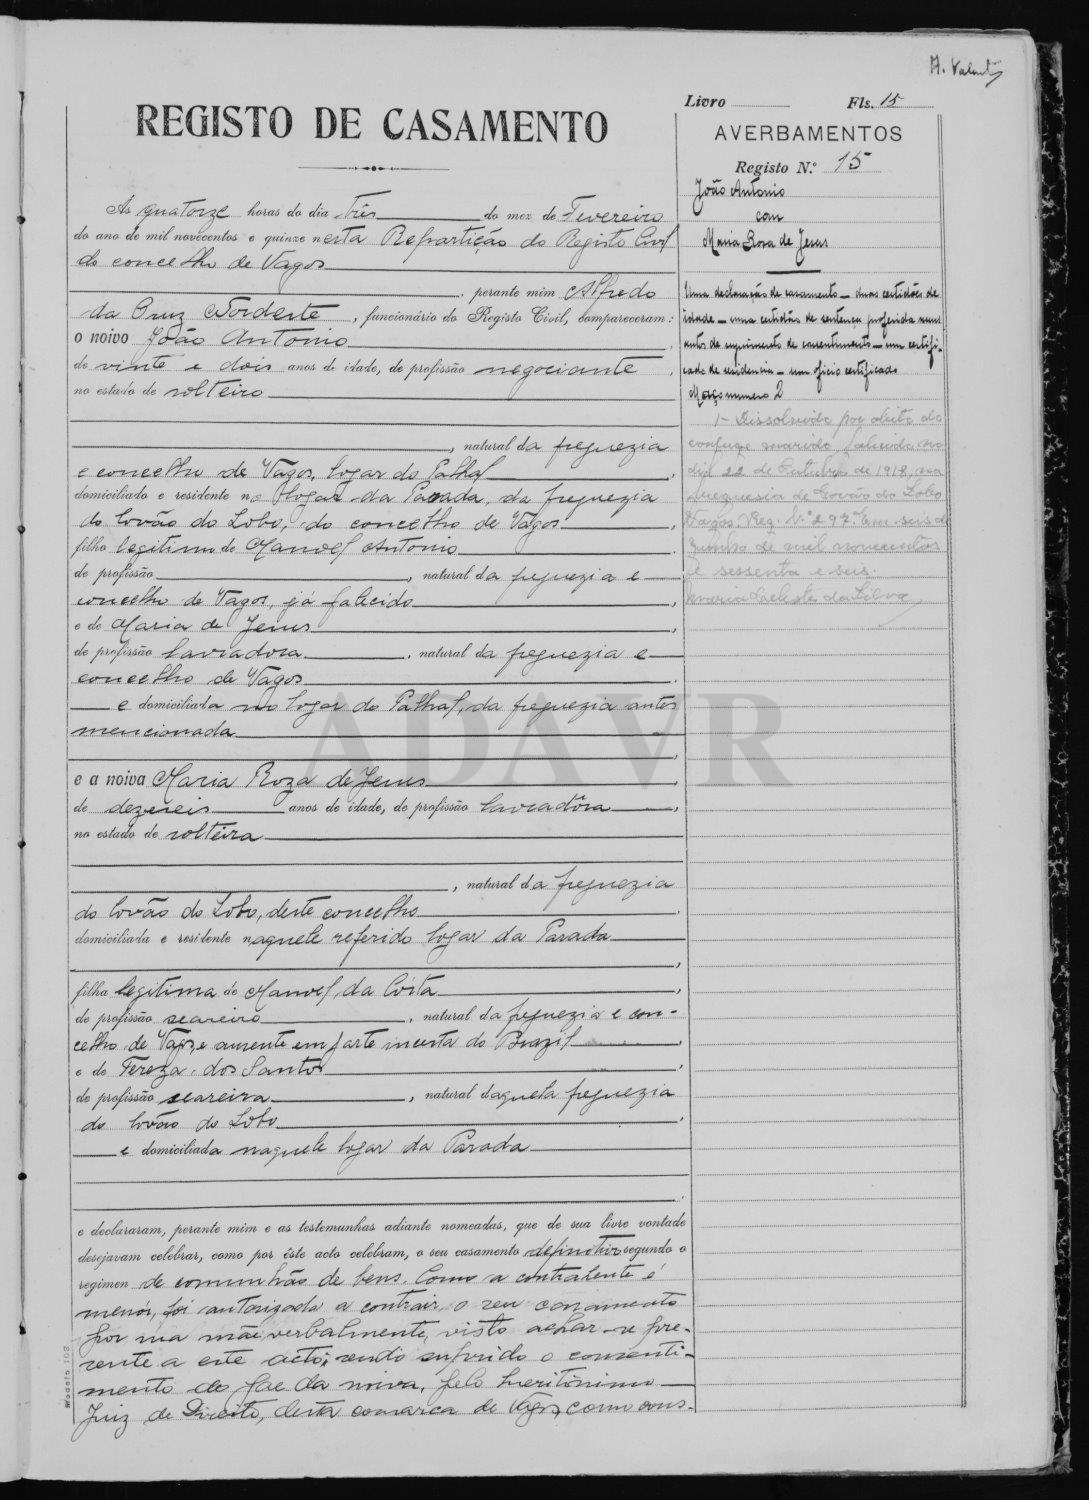 A. Valente
Livro Fls. 15
REGISTO DE CASAMENTO
AVERBAMENTOS
Registo N.º 15
João Antonio
com
Maria Rosa de Jesus
Uma declaração de casamento – duas certidões de
idade – uma certidão de sentença proferida nuns
autos de suprimento de consentimento – um certifi-
cado de residencia – um oficio certificado
Maço numero 2
1- Dissolvido por óbito do
conjuge marido falecido no
dia 22 de Outubro de 1918, na
freguesia de Covão do Lobo
Vagos Reg. N.º 297. Em seis de
Junho de mil novecentos
e sessenta e seis.
Maria Celeste da Silva
As quatorze horas do dia três do mez de Fevereiro
do ano de mil novecentos e quinze nesta Repartição do Registo Civil
do concelho de Vagos
, perante mim Alfredo
da Cruz Nordeste, funcionário do Registo Civil, compareceram:
o noivo João Antonio,
de vinte e dois anos de idade, de profissão negociante,
no estado de solteiro
, natural da freguezia
e concelho de Vagos, logar do Palhal,
domiciliado e residente no logar da Parada, da freguezia
do Covão do Lobo, do concelho de Vagos,
filho legitimo de Manoel Antonio
de profissão , natural da freguezia e
concelho de Vagos, já falecido,
e de Maria de Jesus,
de profissão lavradora, natural da freguezia e
concelho de Vagos
e domiciliada no logar do Palhal, da freguezia antes
mencionada,
e a noiva Maria Roza de Jesus,
de dezeseis anos de idade, de profissão lavradôra,
no estado de solteira
, natural da freguezia
do Covão do Lobo, deste concelho,
domiciliada e residente naquele referido logar da Parada
,
filha legitima de Manoel da Costa,
de profissão seareiro, natural da freguezia e con-
celho de Vagos, e ausente em parte incerta do Brazil,
e de Tereza dos Santos,
de profissão seareira, natural daquela freguezia
do Covão do Lobo,
e domiciliada naquele logar da Parada
.
e declararam, perante mim e as testemunhas adiante nomeadas, que de sua livre vontade
desejavam celebrar, como por êste acto celebram, o seu casamento definitivo segundo o
regimen de comunhão de bens. Como a contraente é
menor, foi autorizada a contrair o seu casamento
por sua mãe verbalmente, visto achar-se pre-
sente a este acto; sendo suprido o consenti-
mento do pae da noiva, pelo meritissimo
Juiz de Direito, desta comarca de Vagos, como cons-
Modelo 103
ADAVR